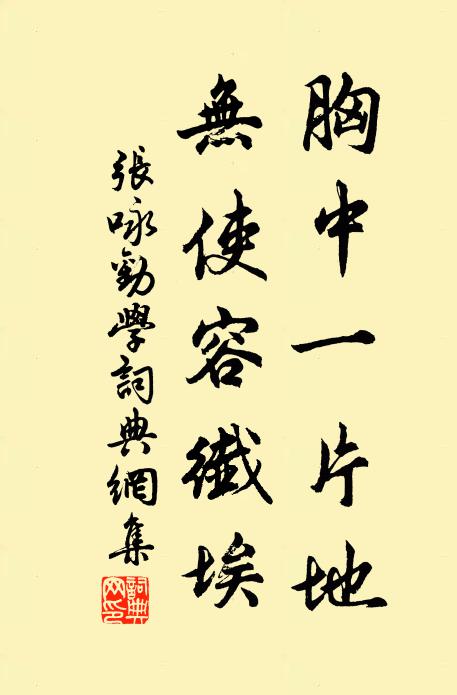 胸中一片地
無使容纖埃
張咏勸學詞典網集